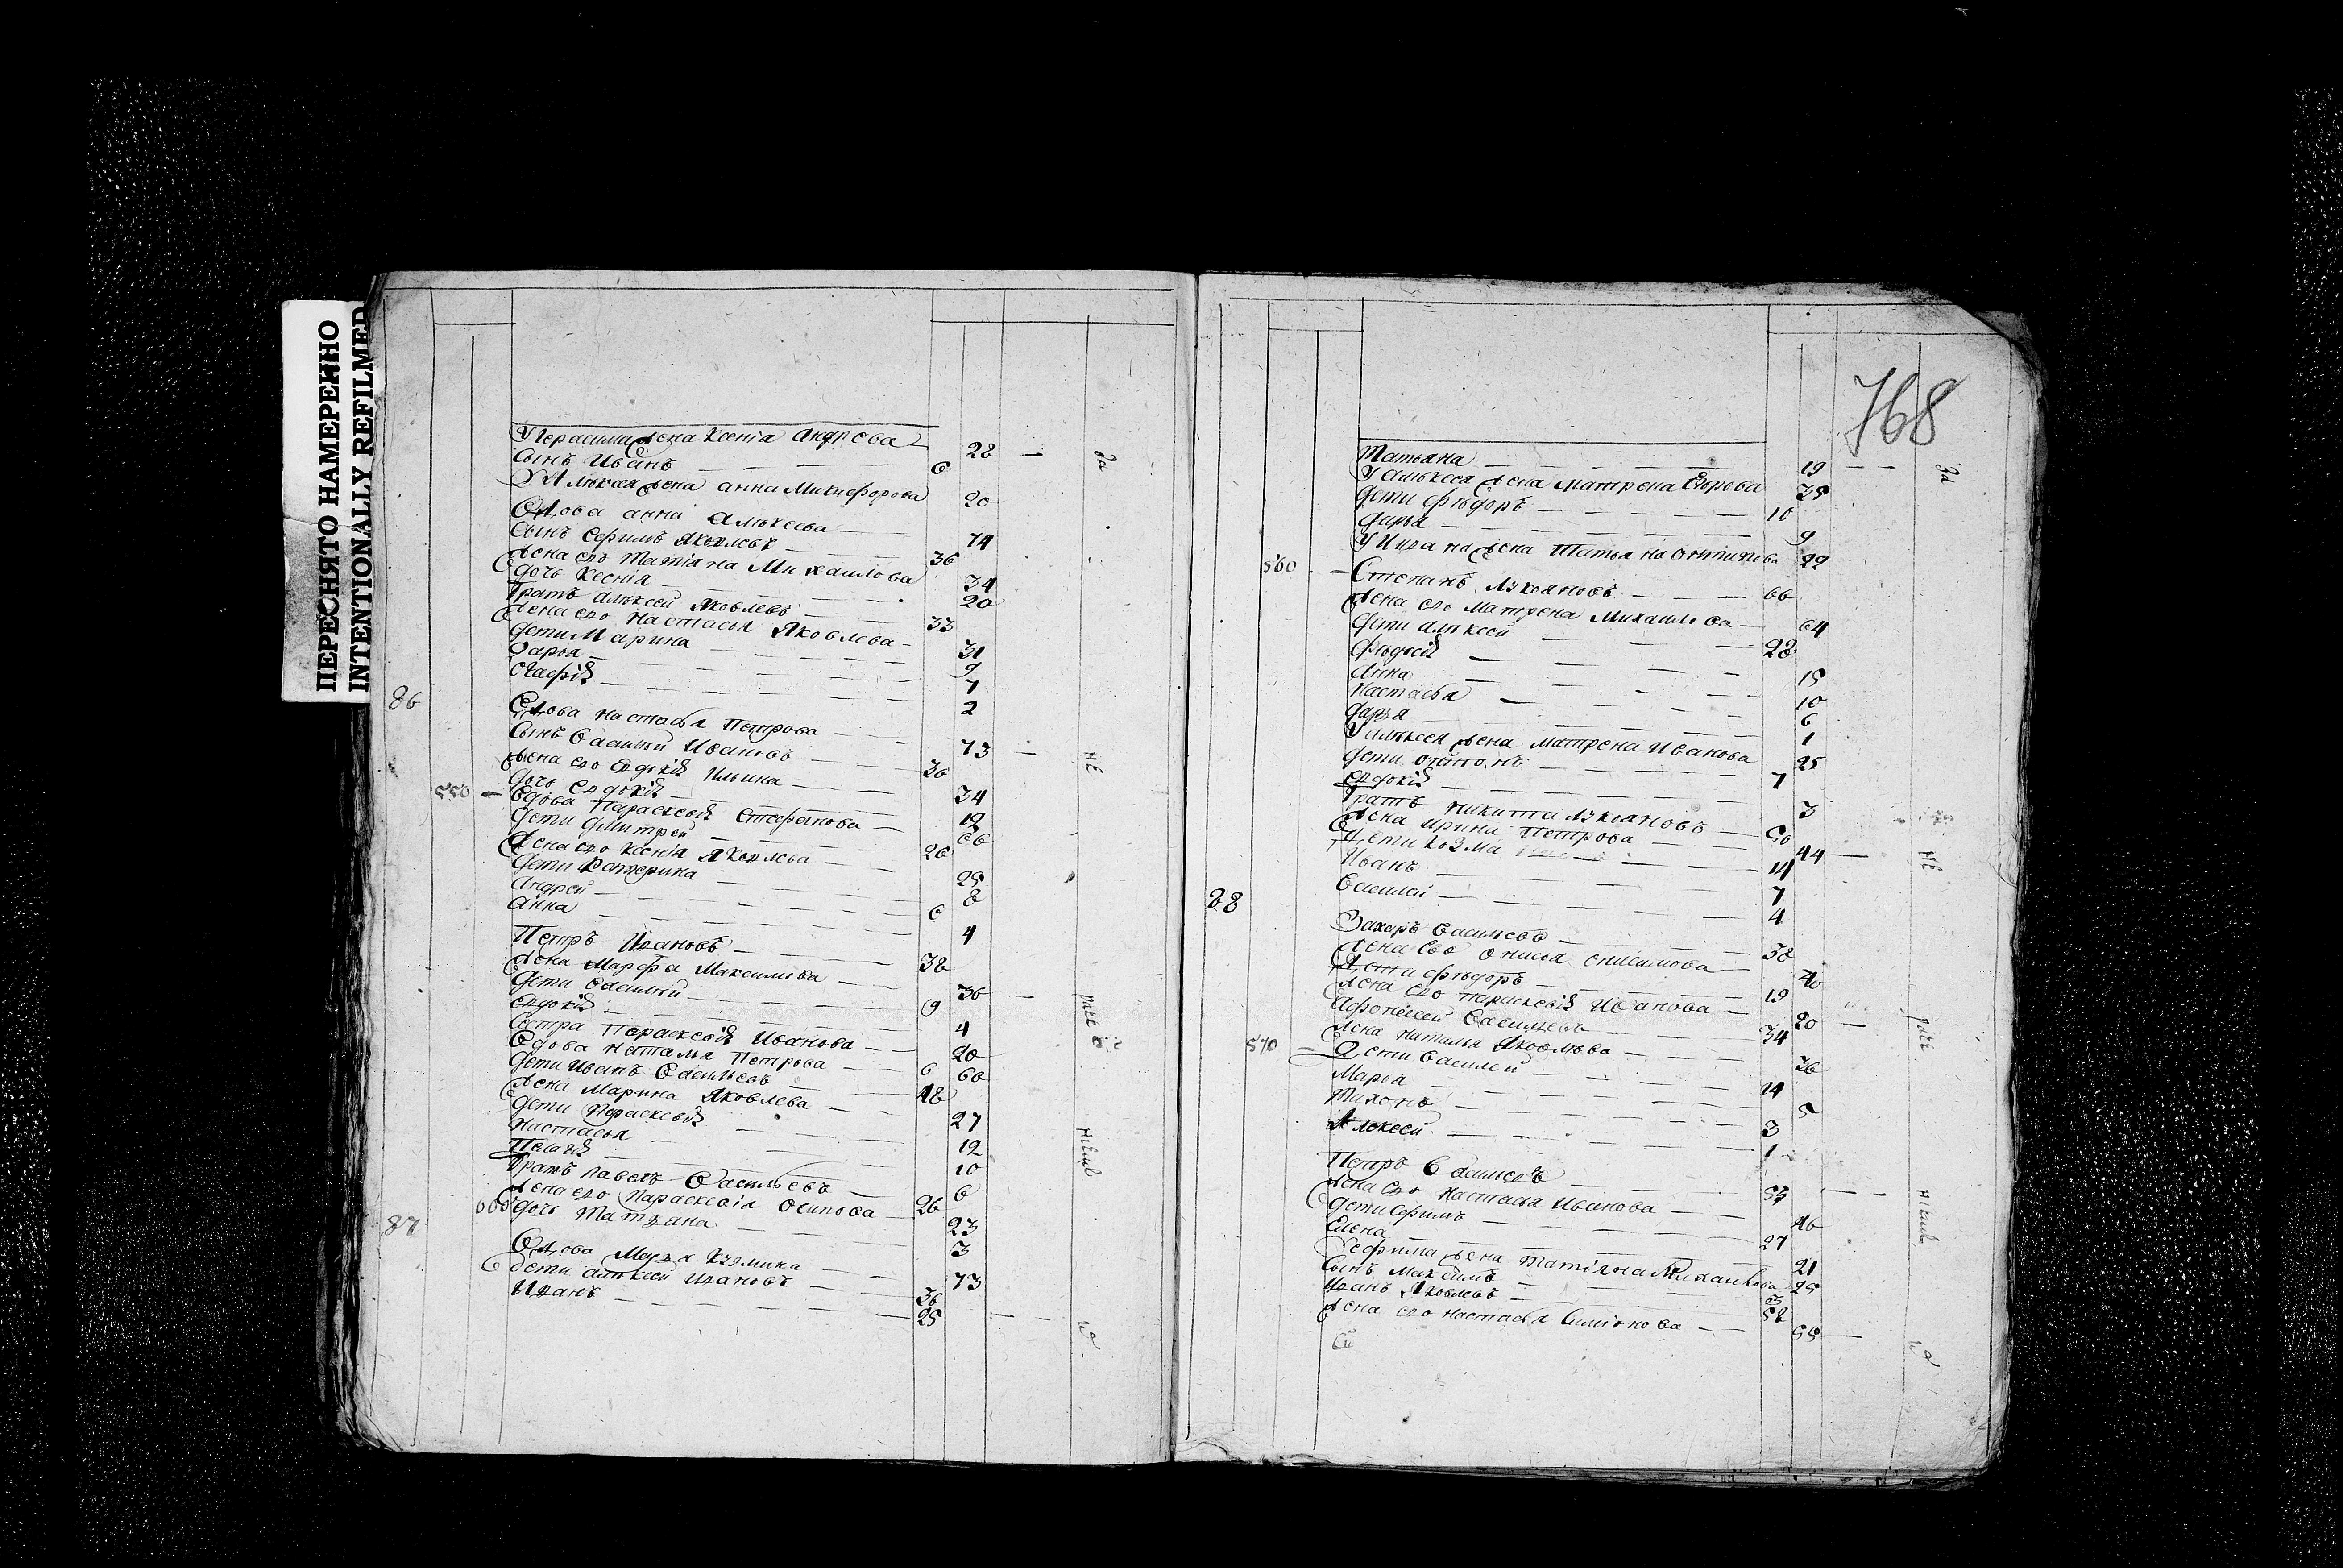 ПЕРЕСНЯТО НАМЕРЕННО
INTENTIONALLY REFILMED
У Герасима жена Ксенiа Андрѣева 28
сынъ Иванъ 6
У Алѣксея жена анна Микифорова 20
Вдова анна Алѣксеева 74
сынъ Ефимъ Яковлевъ 36
жена ево Татiана Михаилова 34
дочь Ксенiа 20
Братъ алѣксей Яковлевъ 33
жена ево Настасья Яковлева 31
дети Марина 9
Дарья 7
Огафiя 2
86
Вдова Настасья Петрова 73
сынъ Василей Ивановъ 36
жена ево Евдокiя Ильина 34
дочь Евдокiя 12
550 Вдова Параскевiя Стефанова 66
дети Дмитрей 26
жена ево Ксенiя Яковлева 25
дети Катерина 8
Андрей 6
анна 4
Петръ Ивановъ 38
жена Марфа Максимова 36
дети Василей 9
Евдокiя 4
Сестра Параскевiя Иванова 20
Вдова Наталья Петрова 60
дети Иванъ Васильевъ 28
жена Марина Яковлева 27
дети Параскевiя 12
Настасья 10
Пелагiя 6
Братъ Павелъ Васильевъ 26
жена ево Параскевiя Осипова 23
дочь Татьяна 3
87
Вдова Марья Кузмина 73
дети алѣксей Ивановъ 36
Иванъ 25
768
Татьяна 19
У алѣксея жена Матрена Егорова 35
дети Фѣдоръ 10
дарья 9
У Ивана жена Татьяна онтипова 22
560 Степанъ Лукояновъ 66
жена ево Матрена Михаилова 64
дети алѣксей 28
Фѣдосiя 15
Анна 10
Настасья 6
дарья 1
У алѣксея жена Матрена Иванова 25
дети 7
Евдокiя 3
Братъ Никита Лукояновъ 50
жена Ирина Петрова 44
Дети Козма 14
Иванъ 7
Василей 4
88
Захаръ Васильевъ 38
жена ево Онисья онисимова 40
Дети Фѣдоръ 19
жена ево Параскевiя Иванова 20
Афонасей Васильевъ 34
жена Наталья Яковлева 36
570 Дети Василей 14
Марья 5
Тихонъ 3
Алексей 1
Петръ Васильевъ 53
жена ево Настасья Иванова 46
дети Ефимъ 27
Елена 21
У Ефима жена Татiяна Михаилова 25
сынъ Максимъ 3
Иванъ Яковлевъ 58
жена ево Настасья Симiонова 55